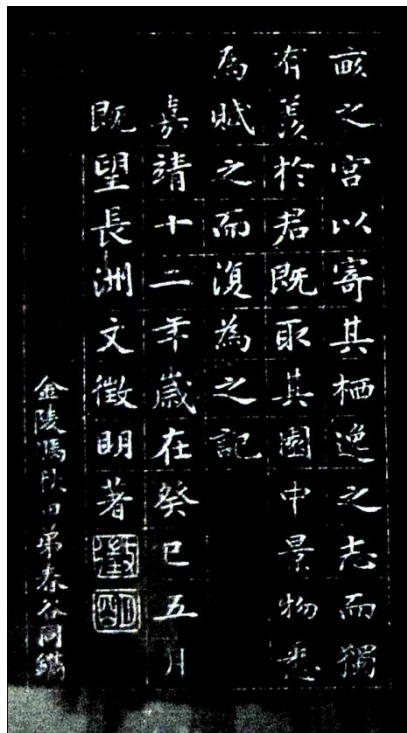 畝之宮以寄其栖逸之志而獨
有羡於君既取其園中景物悉
為賦之而復為之記
嘉靖十二年歲在癸巳五月
既望長洲文徵明著
徵
明
金陵馮秋田弟春谷同鐫